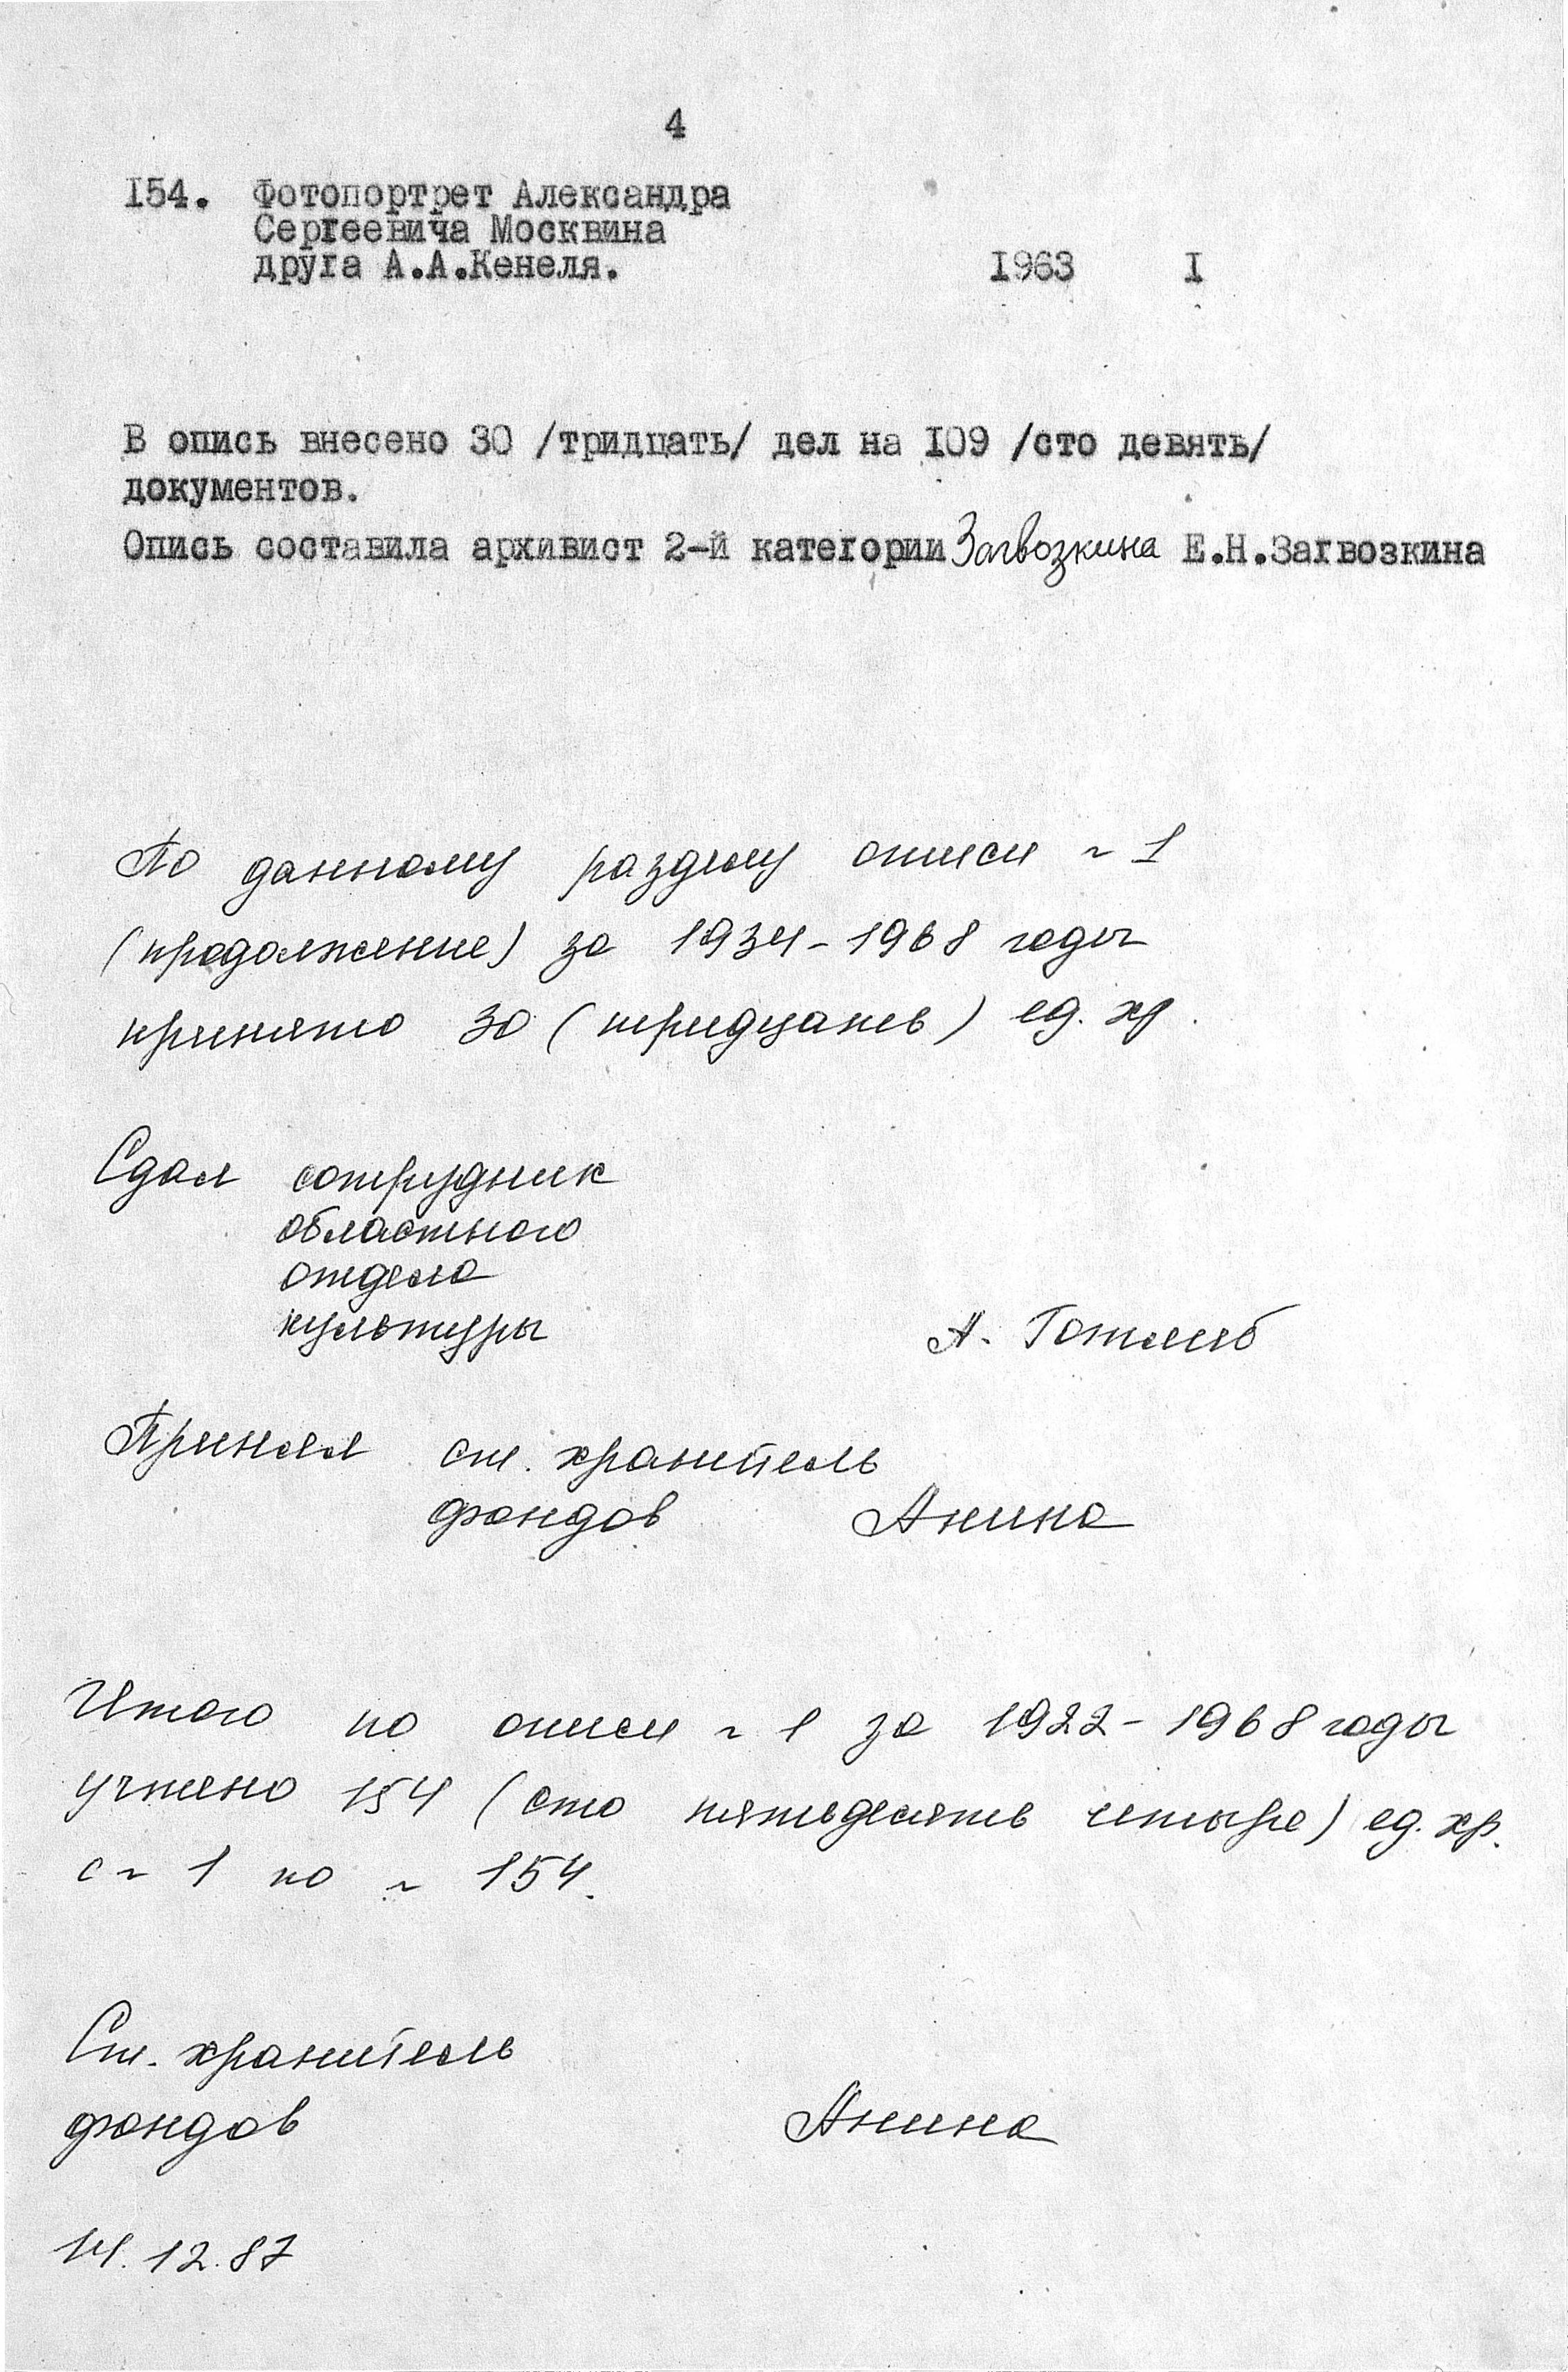 4
154. Фотопортрет Александра
Сергеевича Москвина
друга А.А.Кенеля. 1963 I
В опись внесено 30 /тридцать/ дел на I09 /сто девять/
документов.
Опись составила архивист 2-й категории Загвозкина Е.Н.Загвозкина
По данному разделу описи № 1
(продолжение) за 1934-1968 годы
принято 30 (тридцать) ед. хр.
Сдал сотрудник
областного
отдела
культуры А. Готлиб
Принял ст. хранитель
фондов Анина
Итого по описи № 1 за 1922-1968 годы
учтено 154 (сто пятьдесят четыре) ед. хр.
с № 1 по № 154.
Ст. хранитель
фондов Анина
14.12.87